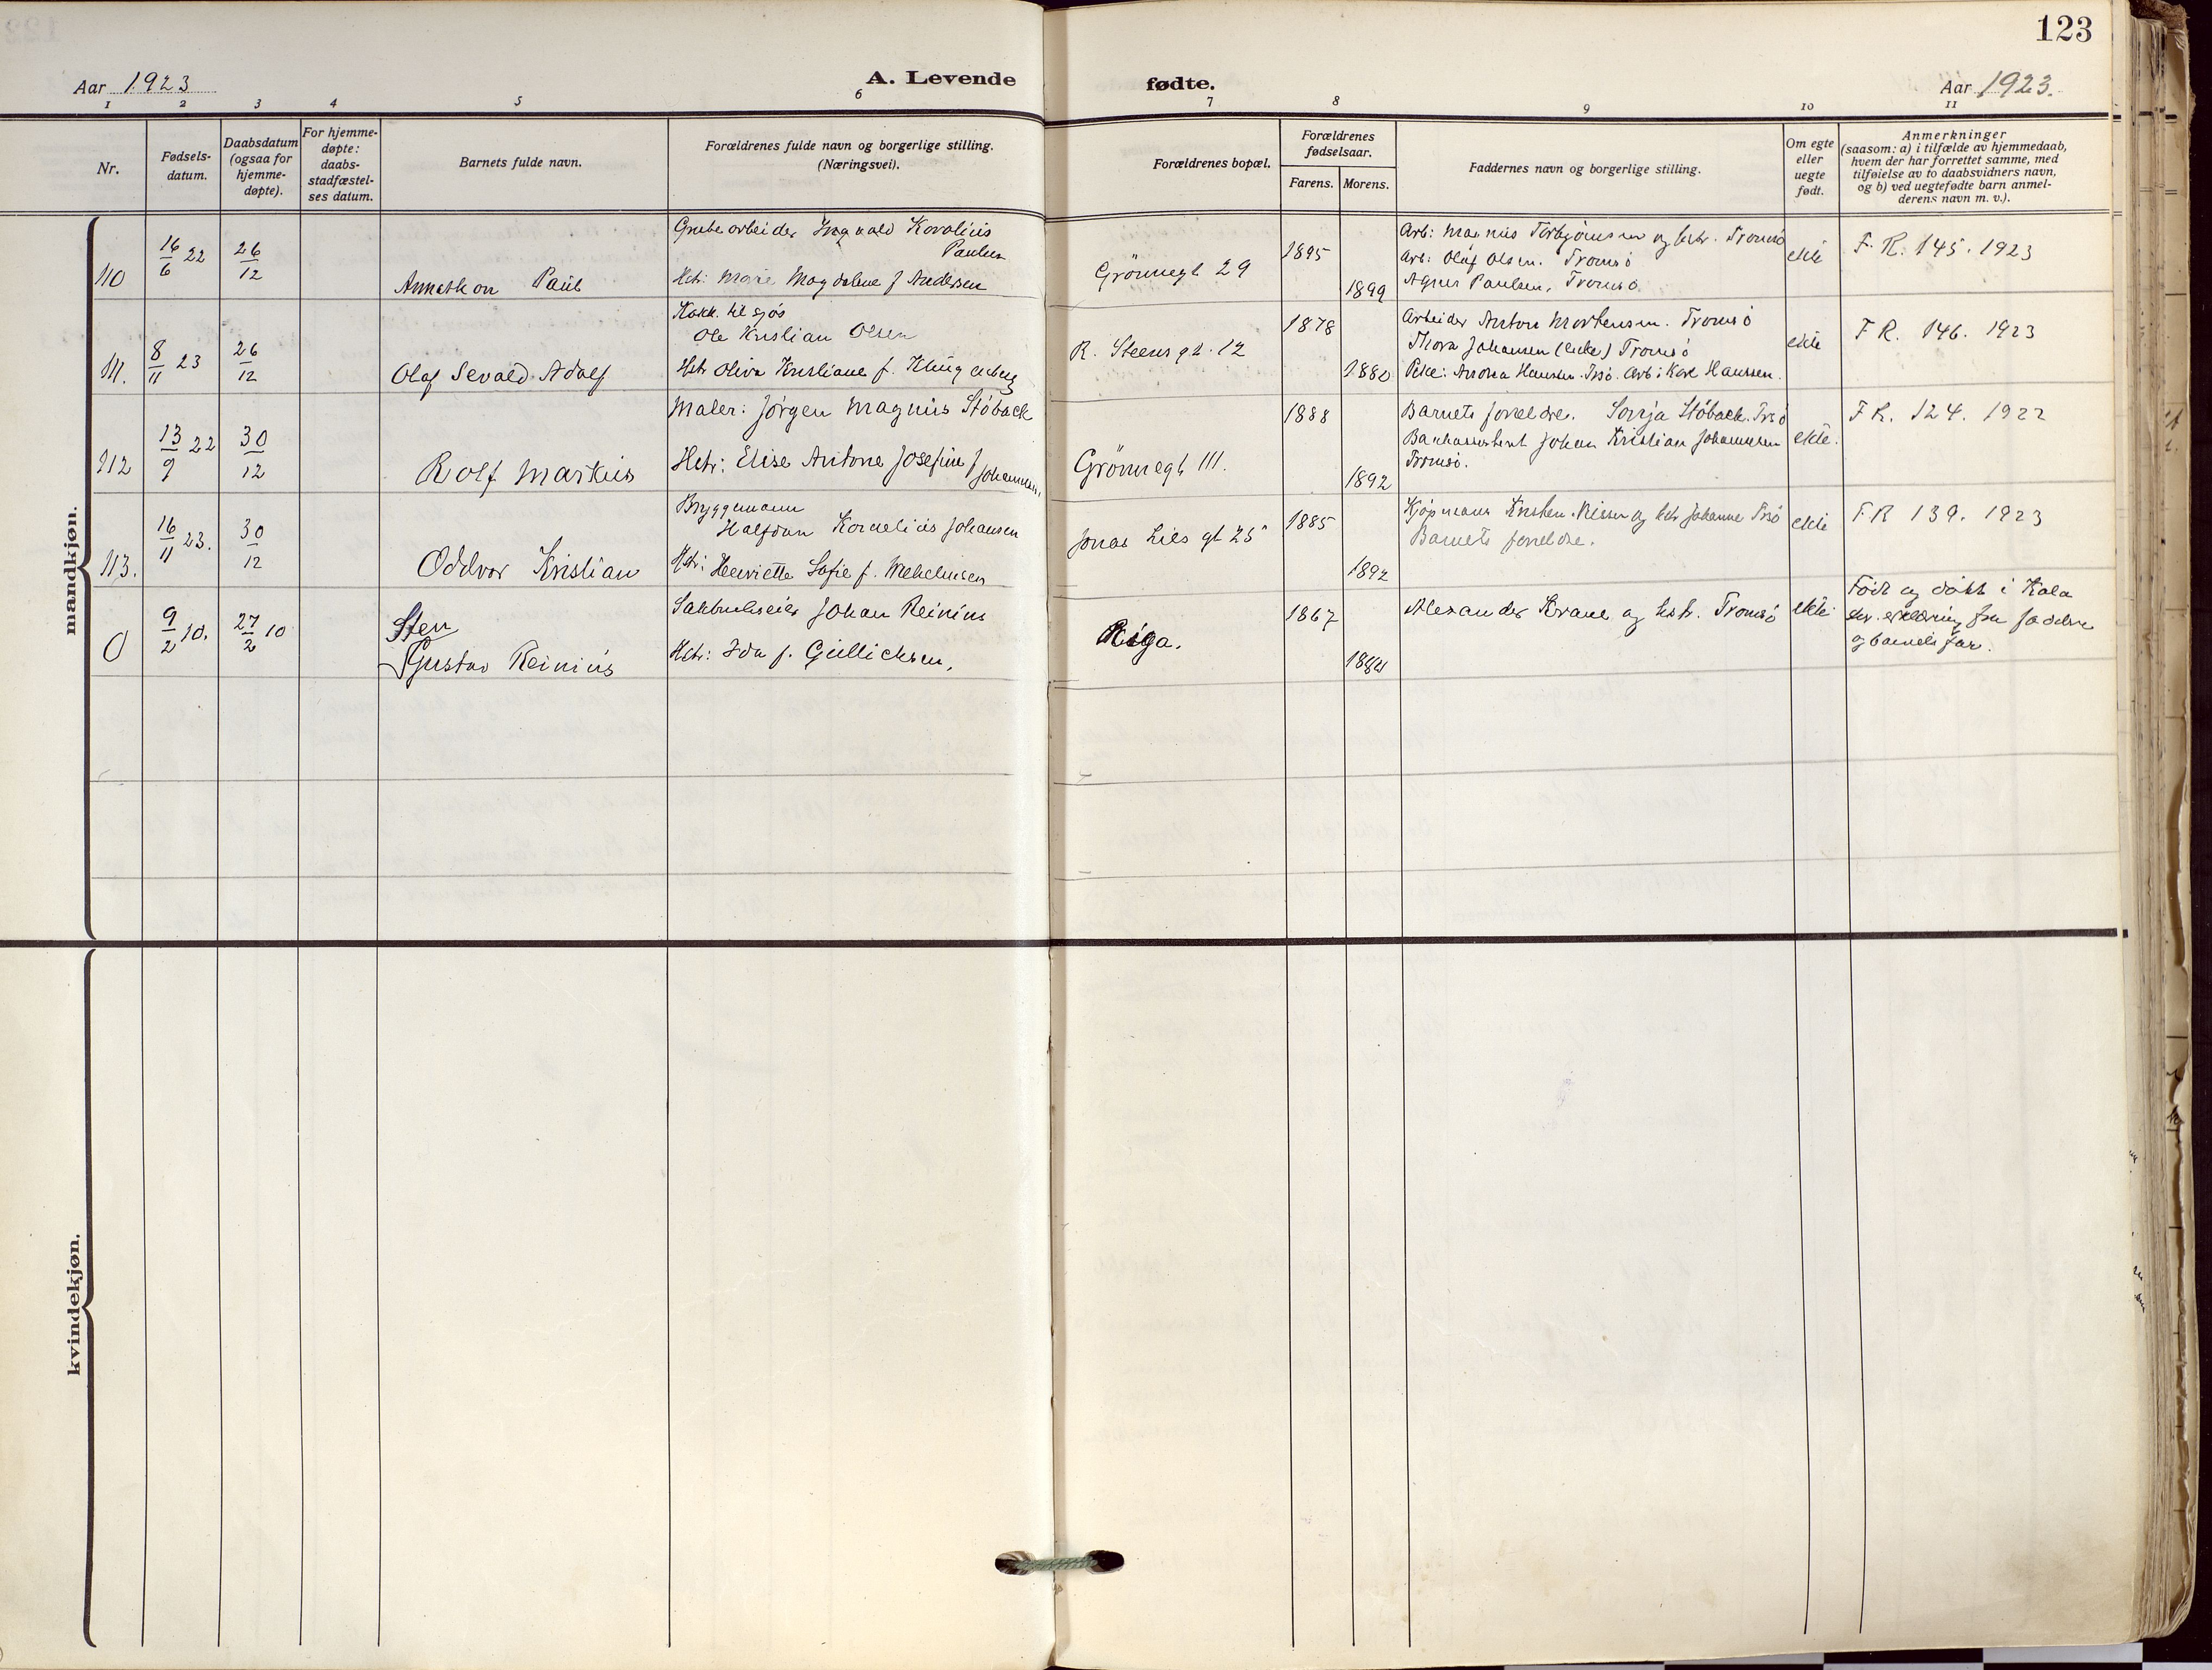 123
Aar 1923
A. Levende
fødte.
Aar 1923.
1 2 3 4 5 6 7 8 9 10 11
Nr.
Fødsels-
datum.
Daabsdatum
(ogsaa for
hjemme-
døpte).
For hjemme-
døpte:
daabs-
stadfæstel-
ses datum.
Barnets fulde navn.
Forældrenes fulde navn og borgerlige stilling.
(Næringsvei).
Forældrenes bopæl.
Forældrenes
fødselsaar.
Farens. Morens.
Faddernes navn og borgerlige stilling.
Om egte
eller
uegte
født.
Anmerkninger
(saasom: a) i tilfælde av hjemmedaab,
hvem der har forrettet samme, med
tilføielse av to daabsvidners navn,
og b) ved uegtefødte barn anmel-
derens navn m. v.).
mandkjøn.
110
16/6 22
26/12
Paul
Grubearbeider Ingvald
Paulsen
Hstr: Marie Magdalene f Andersen
Grönnegt 29
1895
1899
Arb: Magnus Torbjörnsen og hstr. Tromsö
Arb: Olaf Olsen. Tromsö
Agnes Paulsen, Tromsö
ekte
F. R. 145. 1923
111.
8/11 23
26/12
Olaf Sevald Adolf
Kokk til sjös
Ole Kristian Olsen
Hstr Oliva Kristiane f. Klingenberg
R. Steens gt. 12
1878
1880
Arbeider Anton Mortensen. Tromsö
Thora Johansen (enke) Tromsö
Pike: Anna Hansen. Trsö. Arb: Karl Hanssen.
ekte
F R. 146. 1923
112
13/9 22
30/12
Rolf Markus
Maler: Jörgen Magnus Stöback
Hstr: Elise Antone Josefine f Johannesen
Grönnegt 111.
1888
1892
Barnets foreldre. Sonja Stöback. Trsö
Bankassistent Johan Kristian Johannesen
Tromsö.
ekte.
F R. 124. 1922
113.
16/11 23.
30/12
Oddvar Kristian
Bryggemann
Halfdan Kornelius Johansen
Hstr: Henriette Sofie f. Wilhelmsen
Jonas Lies gt 25
1885
1892
Kjøpmann Kristen Nissen og hstr Johanne Trsö
Barnets foreldre.
ekte
F R 139. 1923
0
9/2 10.
27/2 10
Sten
Gustav Reinius
Sakbrukseier Johan Reinius
Hstr: Ida f. Gullichsen.
Riga.
1867
1884
Alexander Krane og hstr. Tromsö
ekte
Födt og döbt i Kola
skr. erklæring fra faddere
og barnets far.
kvindekjøn.